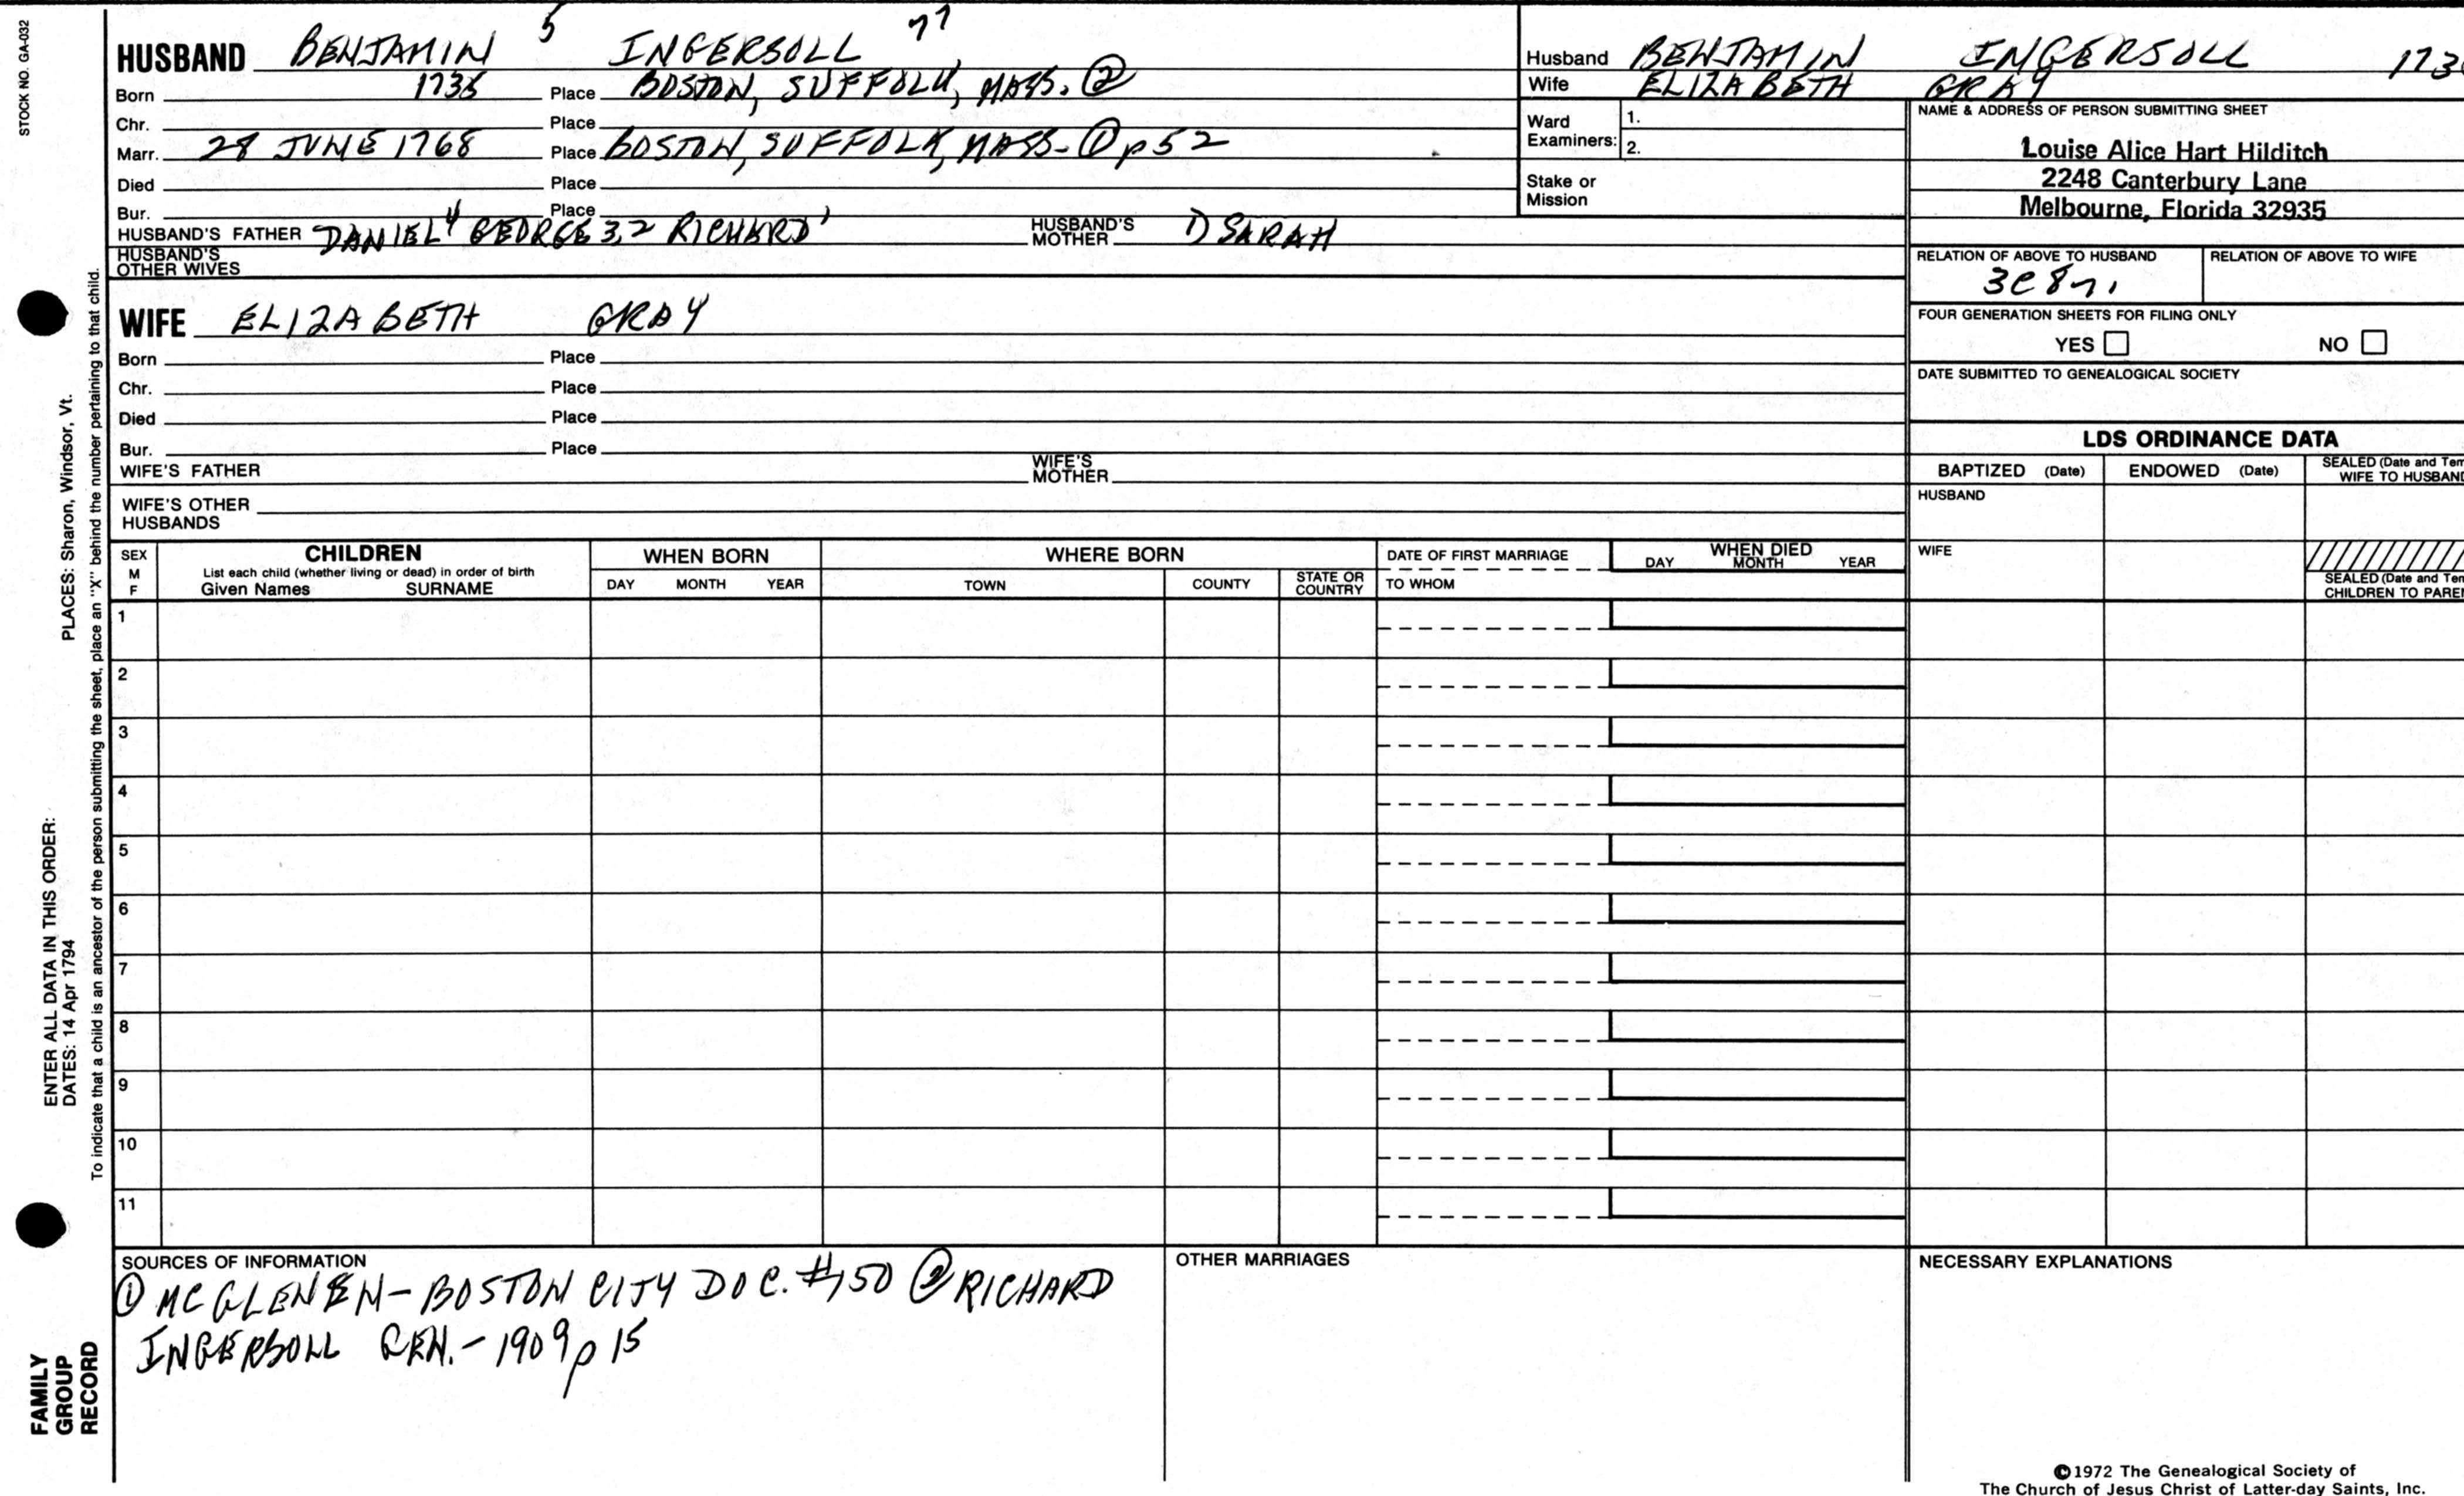 STOCK NO. GA-032
HUSBAND BENJAMIN 5 INGERSOLL 77
Born 1735 Place BOSTON, SUFFOLK, MASS. ②
Chr. Place
Marr. 28 JUNE 1768 Place BOSTON, SUFFOLK, MASS- ① p 52
Died Place
Bur. Place
HUSBAND'S FATHER DANIEL 4 GEORGE 3,2 RICHARD 1 HUSBAND'S MOTHER 1) SARAH
HUSBAND'S OTHER WIVES
WIFE ELIZABETH GRAY
Born Place
Chr. Place
Died Place
Bur. Place
WIFE'S FATHER WIFE'S MOTHER
WIFE'S OTHER HUSBANDS
Husband BENJAMIN INGERSOLL 173
Wife ELIZABETH GRAY
Ward Examiners: 1.
2.
Stake or Mission
NAME & ADDRESS OF PERSON SUBMITTING SHEET
Louise Alice Hart Hilditch
2248 Canterbury Lane
Melbourne, Florida 32935
RELATION OF ABOVE TO HUSBAND RELATION OF ABOVE TO WIFE
3C 8r1
FOUR GENERATION SHEETS FOR FILING ONLY
YES NO
DATE SUBMITTED TO GENEALOGICAL SOCIETY
LDS ORDINANCE DATA
BAPTIZED (Date) ENDOWED (Date) SEALED (Date and Tem
WIFE TO HUSBAND
HUSBAND
WIFE
SEALED (Date and Tem
CHILDREN TO PAREN
SEX
M
F
CHILDREN
List each child (whether living or dead) in order of birth
Given Names SURNAME
WHEN BORN
DAY MONTH YEAR
WHERE BORN
TOWN COUNTY STATE OR COUNTRY
DATE OF FIRST MARRIAGE
TO WHOM
WHEN DIED
DAY MONTH YEAR
1
2
3
4
5
6
7
8
9
10
11
SOURCES OF INFORMATION
① MCGLENEN - BOSTON CITY DOC. #150 ② RICHARD
INGERSOLL GEN. - 1909 p 15
OTHER MARRIAGES
NECESSARY EXPLANATIONS
©1972 The Genealogical Society of
The Church of Jesus Christ of Latter-day Saints, Inc.
PLACES: Sharon, Windsor, Vt.
ENTER ALL DATA IN THIS ORDER:
DATES: 14 Apr 1794
To indicate that a child is an ancestor of the person submitting the sheet, place an "X" behind the number pertaining to that child.
FAMILY
GROUP
RECORD